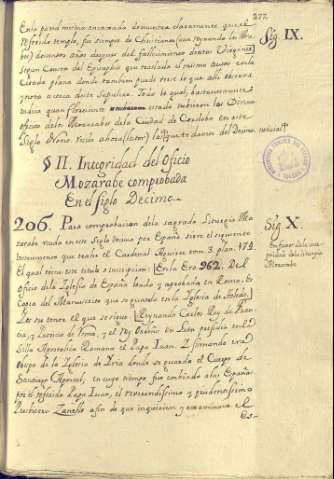 277.
Esta para misma encarnada demuestra claramente que el
referido templo, fue siempre de Christianos (aun reynando los Mo-
ros) doscientos años despues del fallecimiento de estas Virgenes
segun consta del Epitaphio que traslada el mismo autor en la
Citada plana donde tambien puede verse lo que alli observa
y nota acerca deste Sepulcro. Todo lo qual, bastantemente
indica quan floreciente estado tubieron los Divinos
oficios delos Mozarabes dela Ciudad de Cordoba en este
Siglo Nono. Resta ahora (lector) la que te damos del Decimo
Sig IX.
§ II. Integridad del Oficio
Mozarabe comprobada
En el Siglo Decimo
206. Para comprobacion dela sagrada Liturgia Mo-
zarabe usada en este Siglo Decimo por España sirve el siguiente
Instrumento que trahe el Cardenal Aguirre tom. 3. plan. 174.
El qual tiene este titulo o inscripcion: En la Era 962. Del
oficio dela Iglesia de España loado y aprobado en Roma. Es
Copia del Manuscrito que se guarda en la Iglesia de Toledo.
Y su tenor el que se sigue: Reynando Carlos Rey de Fran-
cia, y Patricio de Roma, y el Rey Ordoño en Leon presidia en la
Silla Apostolica Romana el Papa Juan. Y Sisnando era
Obispo de la Iglesia de Iria donde se guarda el Cuerpo de
Santiago Apostol, en cuyo tiempo fue embiado alas Españas
por el referido Papa Juan, el reverendissimo y prudentissimo
Presbytero Zanello a fin de que inquiriese y examinase el
Es-
Sig X.